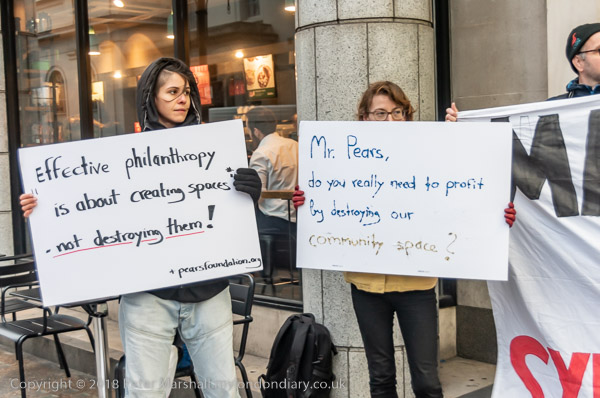 Effective philanthropy
"is about creating spaces"
- not destroying them!
* pearsfoundation.org
Mr. Pears,
do you really need to profit
by destroying our
community space?
SY
Copyright © 2018
londondiary.co.uk